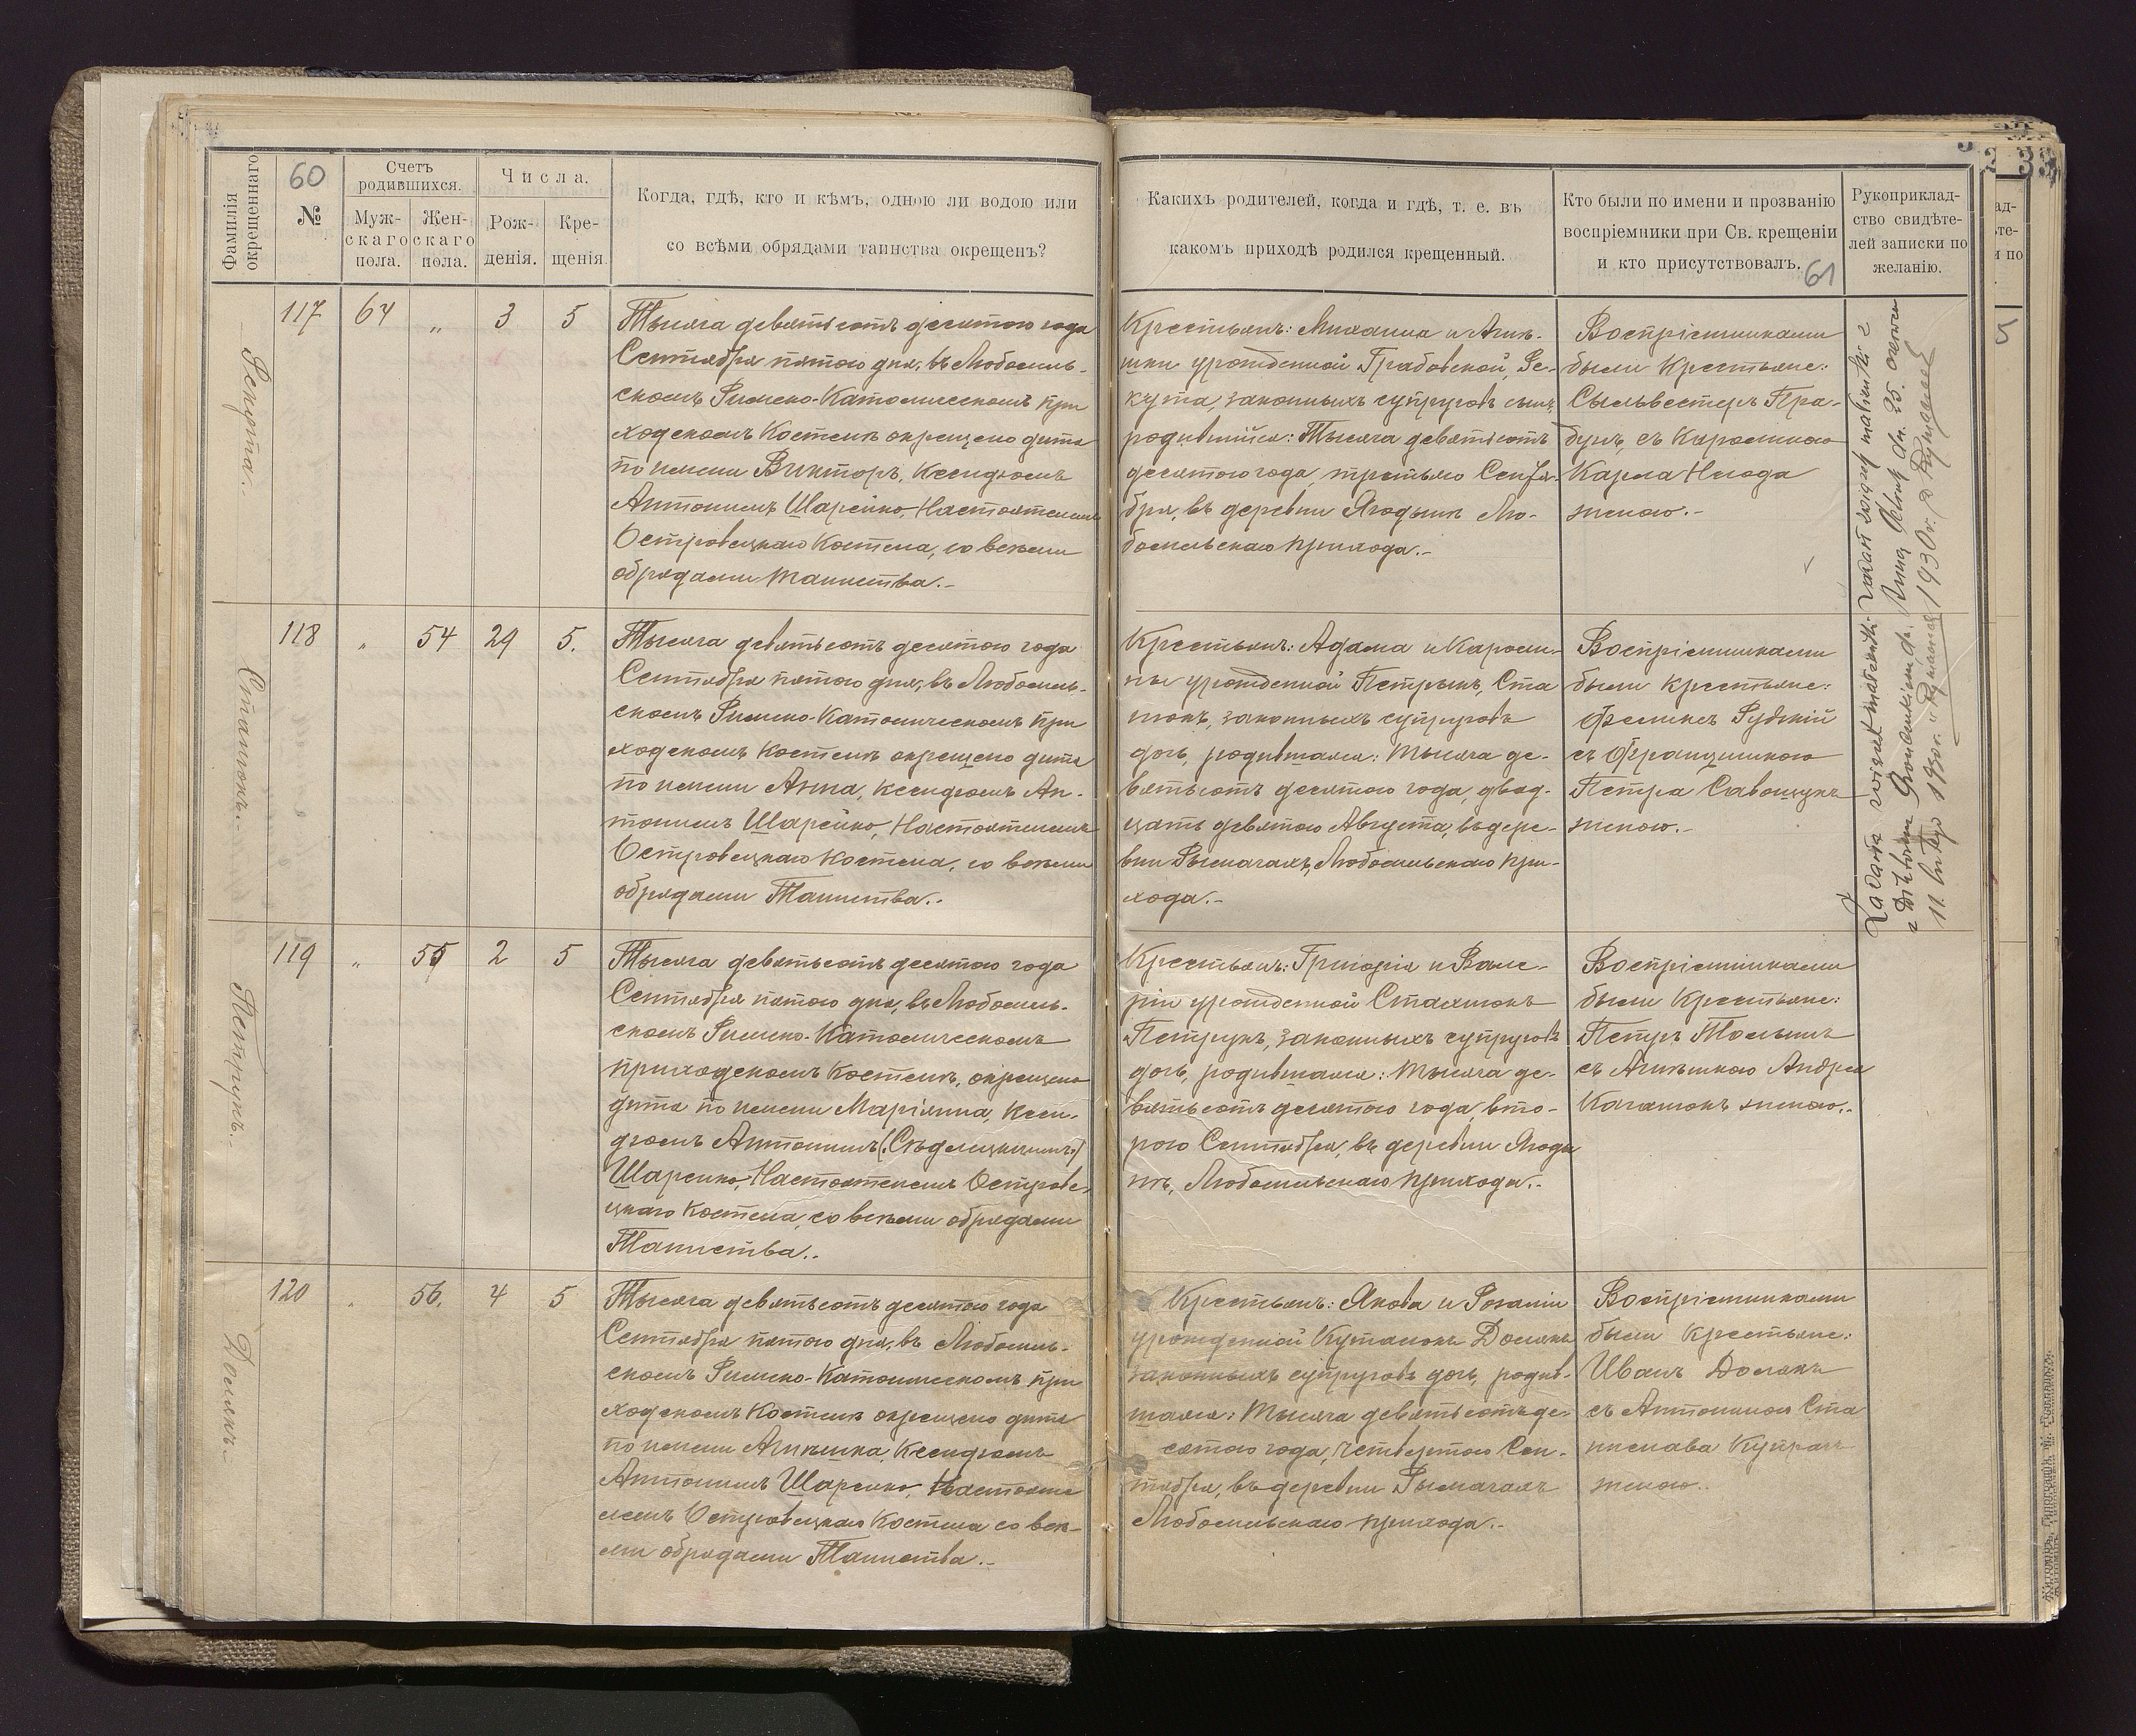 Фамилія окрещеннаго
60
№
Счетъ родившихся.
Муж-
скаго
пола.
Жен-
скаго
пола.
Числа.
Рож-
денія.
Кре-
щенія
Когда, гдѣ, кто и кѣмъ, одною ли водою или
со всѣми обрядами таинства окрещенъ?
Какихъ родителей, когда и гдѣ, т. е. въ
какомъ приходѣ родился крещенный.
Кто были по имени и прозванію
воспріемники при Св. крещеніи
и кто присутствовалъ.
61
Рукоприклад-
ство свидѣте-
лей записки по
желанію.
Рекута.
117 64 „ 3 5
Тысяча девятьсотъ десятого года
Сентября пятого дня, въ Любомль-
скомъ Римско-Католическомъ при
ходскомъ Костелѣ окрещено дитя
по имени Викторъ, Ксендзомъ
Антониемъ Шарейко, Настоятелемъ
Островецкаго Костела, со всѣми
обрядами таинства.-
Крестьянъ: Михаила и Агнѣ-
шки урожденной Грабовской, Ре-
кута, законныхъ супруговъ сынъ,
родившійся: Тысяча девятьсотъ
десятого года, третьяго Сентя-
бря, въ деревни Ягодынѣ Лю-
бомльскаго прихода.-
Воспріемниками
были Крестьяне:
Сыльвестеръ Гра-
бунъ, съ Каролиною
Карла
женою.-
Стасюкъ.-
118 „ 54 29 5.
Тысяча девятьсотъ десятого года
Сентября пятого дня, въ Любомль-
скомъ Римско-Католическомъ при
ходскомъ Костелѣ окрещено дитя
по имени Анна, Ксендзомъ Ан-
тониемъ Шарейко, Настоятелемъ
Островецкаго Костела, со всѣми
обрядами Таинства..
Крестьянъ: Адама и Кароли-
ны урожденной Петрыкъ, Ста
сюкъ, законныхъ супруговъ
дочь, родившаяся: Тысяча де-
вятьсотъ десятого года, двад-
цать девятого Августа, въ дере-
вни Рымачахъ, Любомльскаго при-
хода.-
Воспріемниками
были Крестьяне:
Феликсъ Рудскій
съ Францишкою
Петра Савощукъ
женою.-
11. lutego 1930 r.
Петрукъ.
119 „ 55 2 5
Тысяча девятьсотъ десятого года
Сентября пятого дня, въ Любомль-
скомъ Римско-Католическомъ
приходскомъ Костелѣ, окрещено
дитя по имени Маріянна, Ксен-
дзомъ Антониемъ
Шарейко, Настоятелемъ Островe-
цкаго Костела, со всѣми обрядами
Таинства..
Крестьянъ: Григорія и Вале-
ріи урожденной Стасюкъ
Петрукъ, законныхъ супруговъ
дочь, родившаяся: Тысяча де-
вятьсотъ десятого года, вто-
рого Сентября, въ деревни Ягоды
нѣ, Любомльскаго прихода.-
Воспріемниками
были Крестьяне:
Петръ
съ Агнѣшкою Андрея
женою..
Долякъ.
120 „ 56. 4 5
Тысяча девятьсотъ десятого года
Сентября пятого дня, въ Любомль-
скомъ Римско-Католическомъ при
ходскомъ Костелѣ окрещено дитя
по имени Агнѣшка, Ксендзомъ
Антониемъ Шарейко, Настояте
лемъ Островецкаго Костела со всѣ-
ми обрядами Таинства.-
Крестьянъ: Якова и Розаліи
урожденной Долякъ
законныхъ супруговъ дочь, родив-
шаяся: Тысяча девятьсотъ де-
сятого года, четвертого Сен-
тября, въ деревни Рымачахъ
Любомльскаго прихода.-
Воспріемниками
были Крестьяне:
Иванъ Долякъ
съ Антониною Ста
нислава
женою..